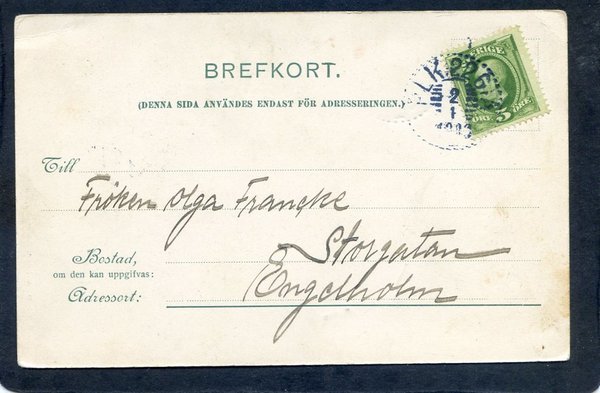 BREFKORT.
(DENNA SIDA ANVÄNDES ENDAST FÖR ADRESSERINGEN.)
SVERIGE
5 ÖRE
2
1
Till
Fröken Olga Francke
Storgatan
Bostad,
om den kan uppgifvas:
Engelholm
Adressort: